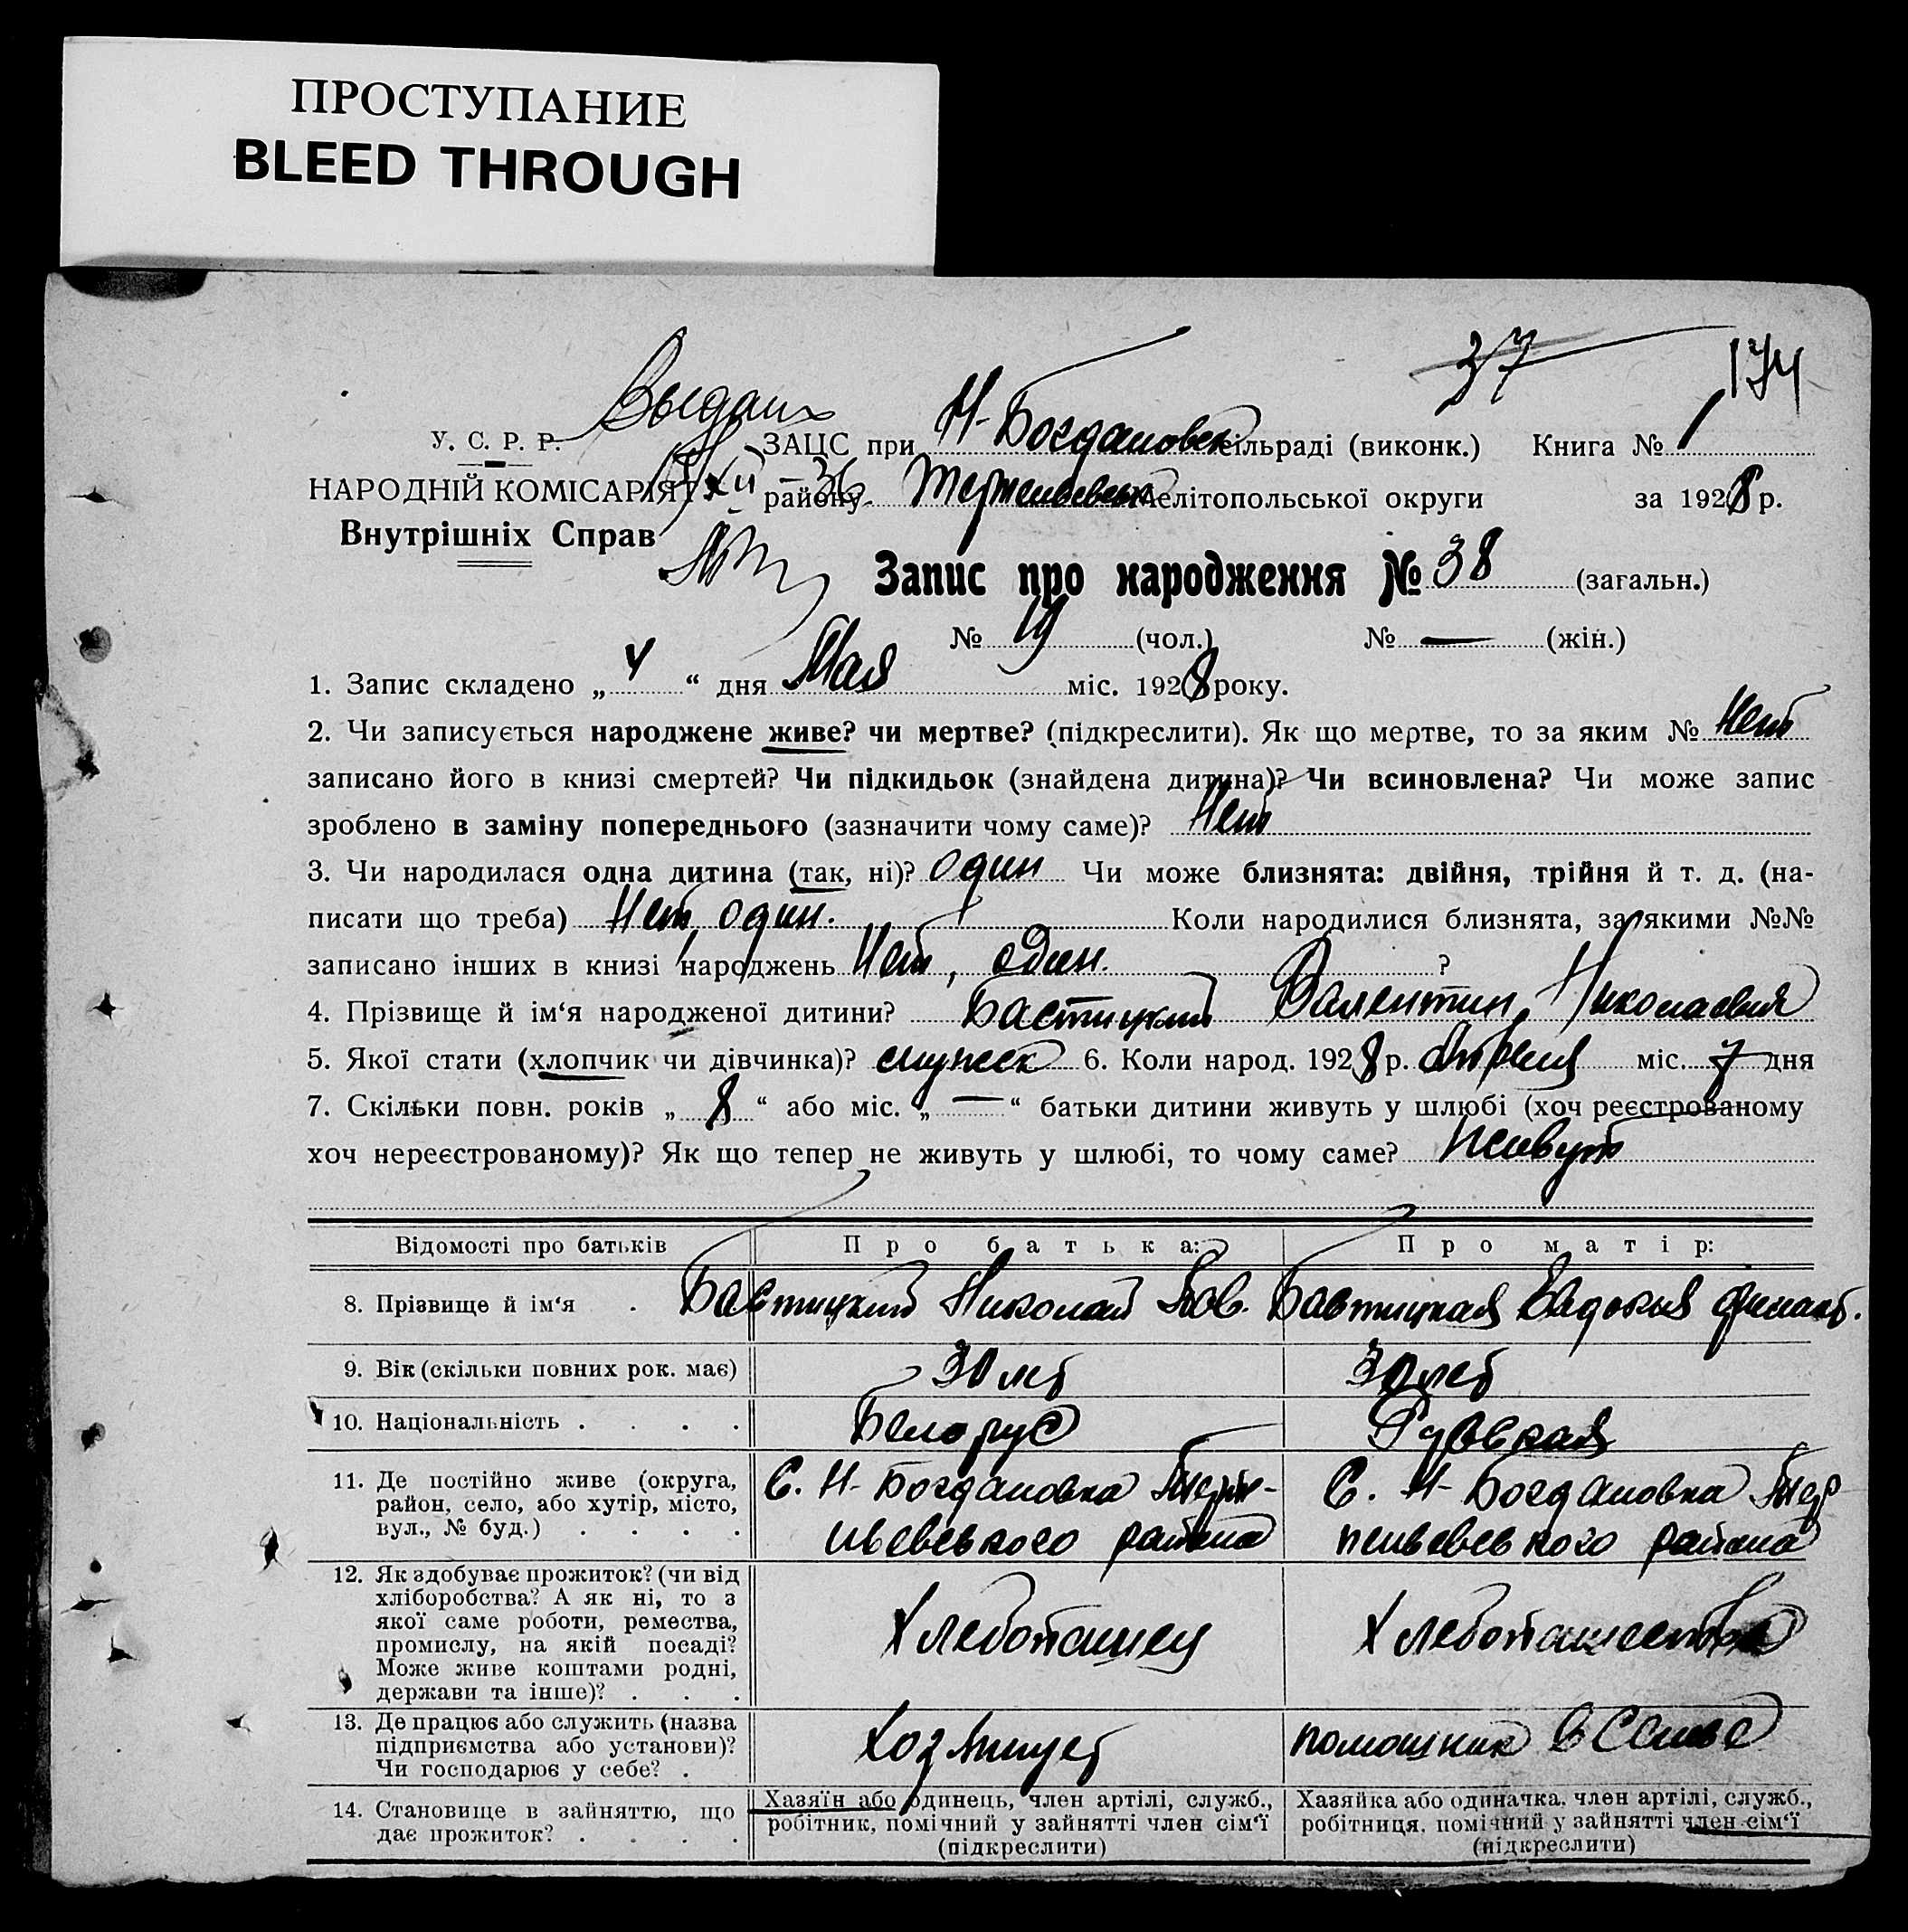 ПРОСТУПАНИЕ
BLEED THROUGH
37 174
У. С. Р. Р.
НАРОДНІЙ КОМІСАРІЯТ
Внутрішніх Справ
XII – 36
ЗАЦС при Н-Богдановск сільраді (виконк.) Книга № 1
району Мелітопольської округи за 1928 р.
Запис про народження № 38 (загальн.)
№ 19 (чол.) № — (жін.)
1. Запис складено „ 4 “ дня Мая міс. 1928 року.
2. Чи записується народжене живе? чи мертве? (підкреслити). Як що мертве, то за яким № Нет
записано його в книзі смертей? Чи підкидьок (знайдена дитина)? Чи всиновлена? Чи може запис
зроблено в заміну попереднього (зазначити чому саме)? Нет
3. Чи народилася одна дитина (так, ні)? один Чи може близнята: двійня, трійня й т. д. (на-
писати що треба) Нет, один. Коли народилися близнята, за якими №№
записано інших в книзі народжень Нет, один. ?
4. Прізвище й ім‘я народженої дитини? Бастицкий Валентин Николаевич
5. Якої стати (хлопчик чи дівчинка)? мужск 6. Коли народ. 1928 р. Апреля міс. 7 дня
7. Скільки повн. років „ 8 “ або міс. „ — “ батьки дитини живуть у шлюбі (хоч реєстрованому
хоч нереєстрованому)? Як що тепер не живуть у шлюбі, то чому саме? Живут
Відомості про батьків Про батька: Про матір:
8. Прізвище й ім‘я . Бастицкий Николай Пав. Бастицкая Евдокия
9. Вік (скільки повних рок. має) 30 лет 30 лет
10. Національність . . . . Белорус Русская
11. Де постійно живе (округа,
район, село, або хутір, місто,
вул., № буд.) . . . .
С. Н-Богдановка Терпе-
ньевского района
С. Н-Богдановка Тер
пеньевского района
12. Як здобуває прожиток? (чи від
хліборобства? А як ні, то з
якої саме роботи, ремества,
промислу, на якій посаді?
Може живе коштами родні,
держави та інше)? . . .
Хлебопашец
Хлебопашество
13. Де працює або служить (назва
підприємства або установи)?
Чи господарює у себе? .
помощник в Семье
14. Становище в зайняттю, що
дає прожиток? . . . .
Хазяїн або одинець, член артілі, служб.,
робітник, помічний у зайнятті член сім‘ї
(підкреслити)
Хазяйка або одиначка, член артілі, служб.,
робітниця, помічний у зайнятті член сім‘ї
(підкреслити)